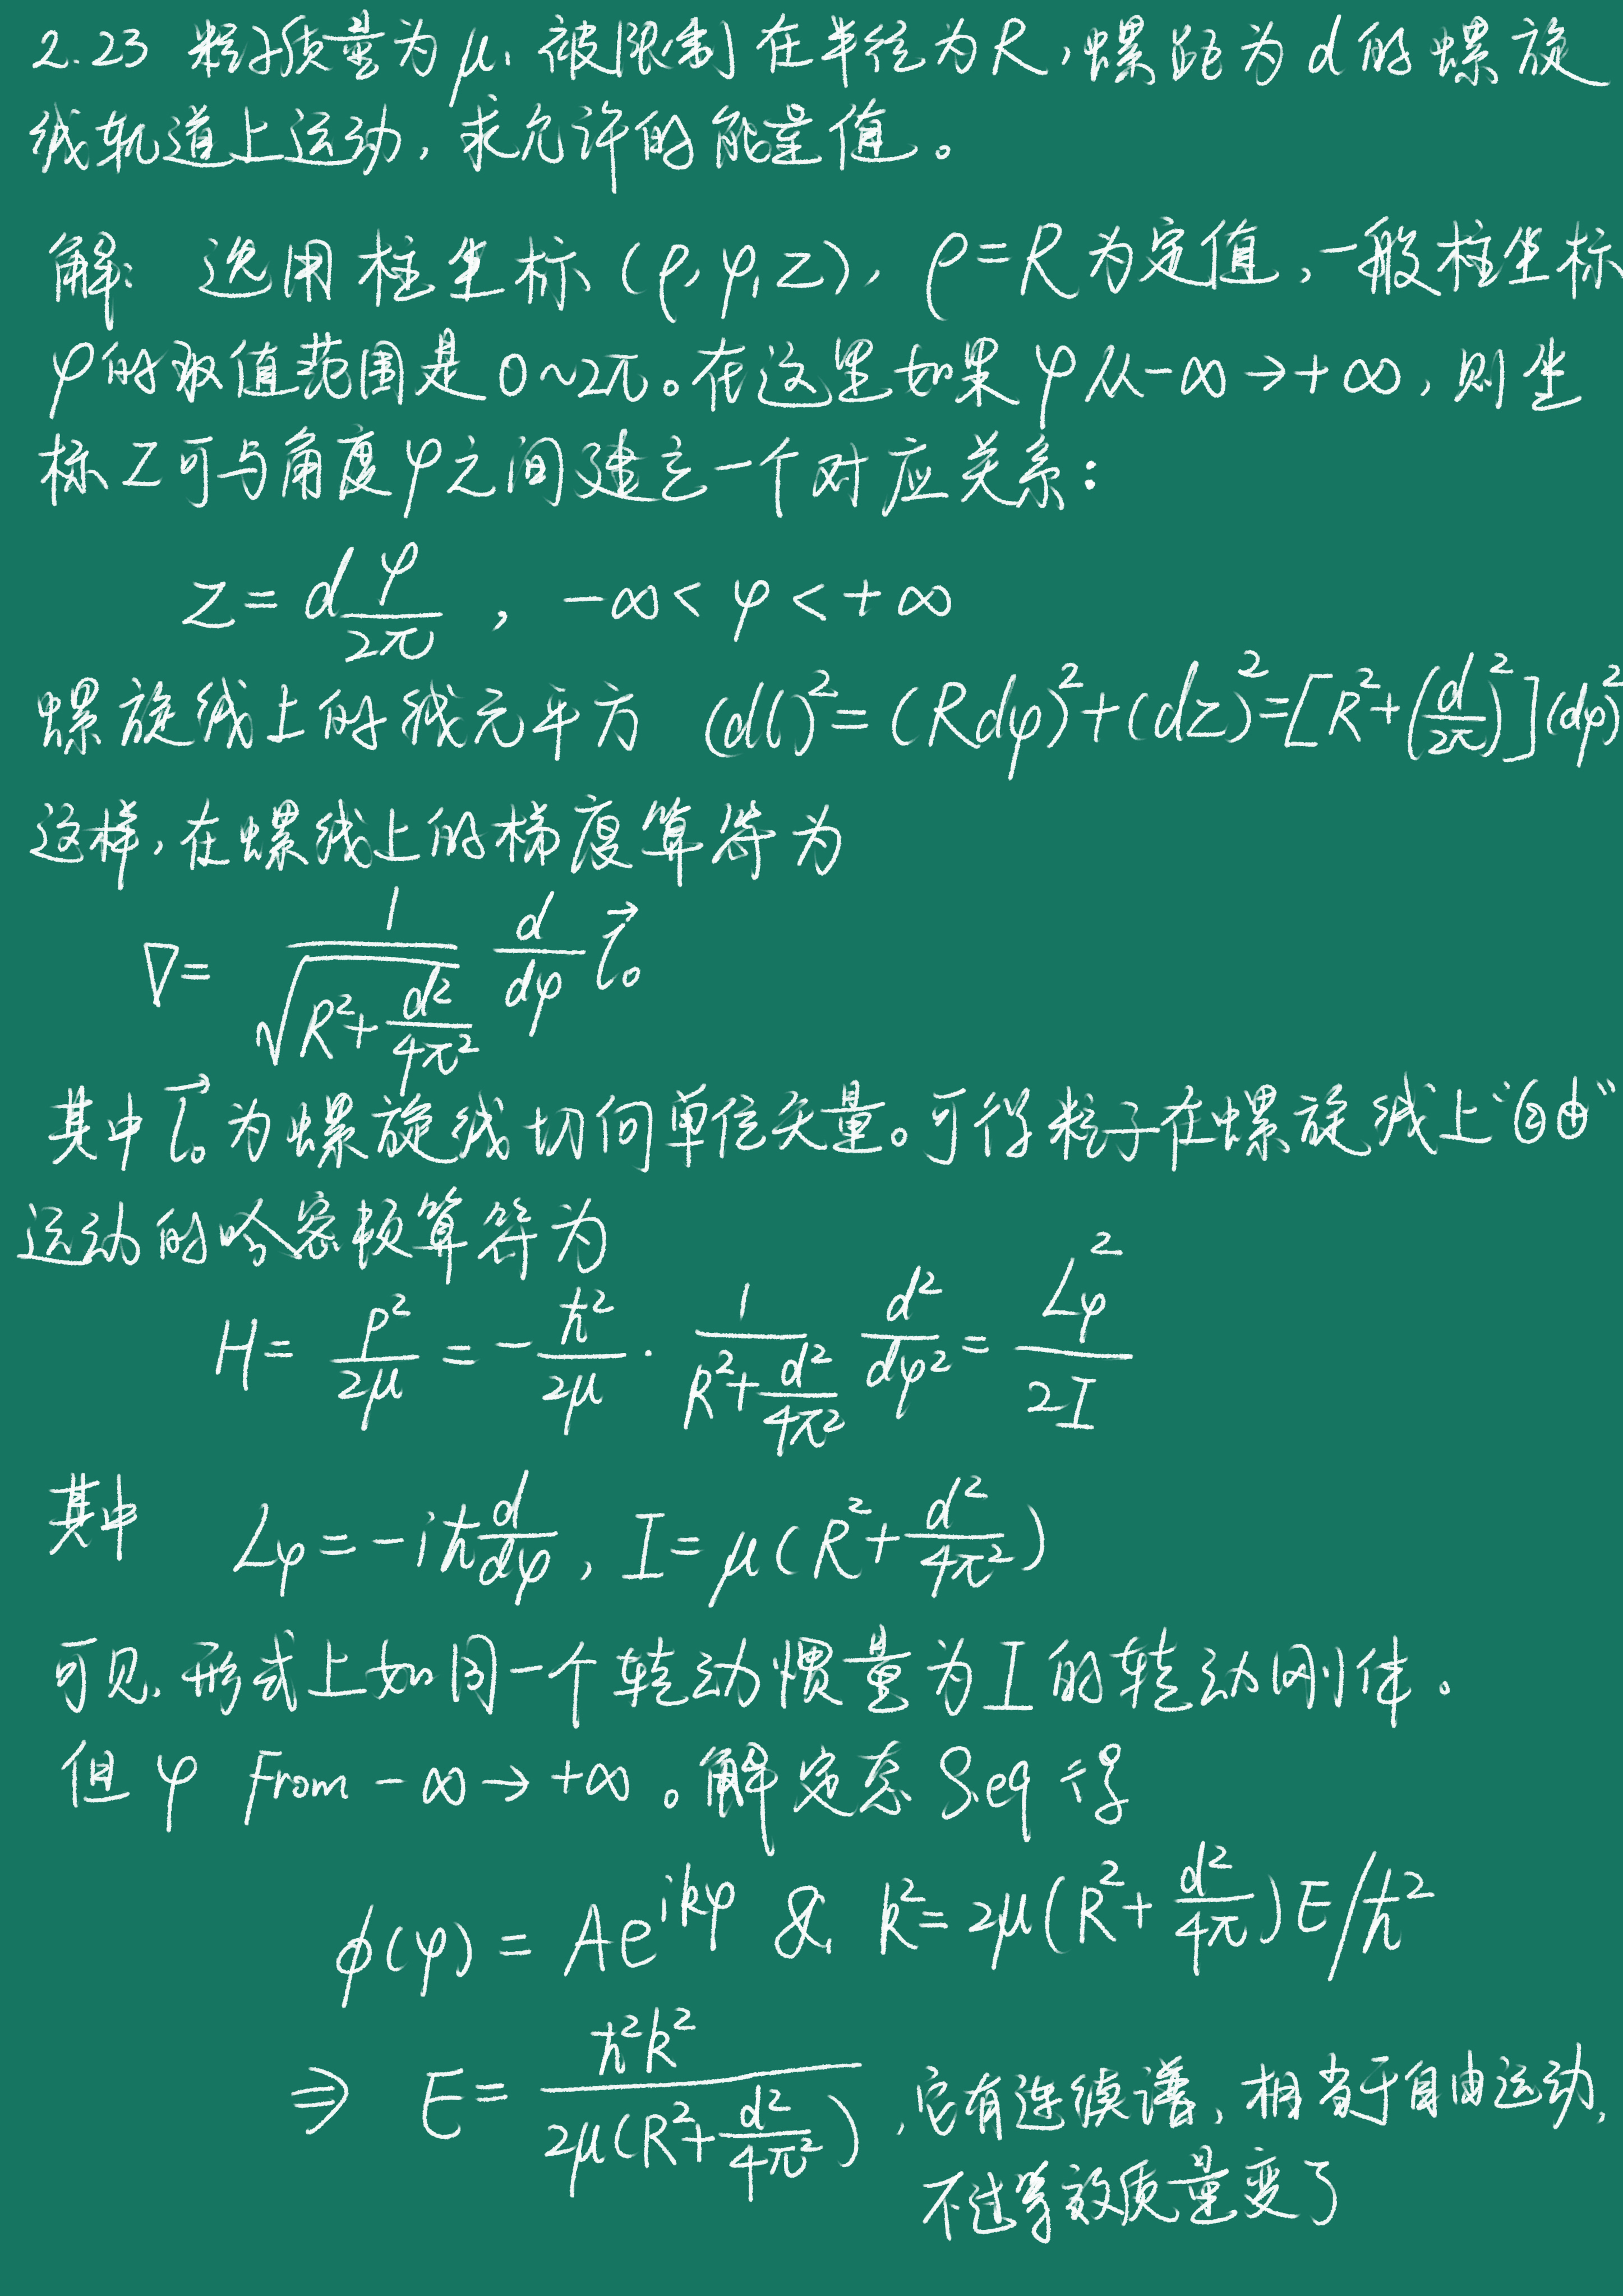 2.23 粒子质量为μ, 被限制在半径为R,螺距为d的螺旋
线轨道上运动,求允许的能量值。
解: 选用柱坐标(ρ,φ,z), ρ=R为定值,一般柱坐标
φ的取值范围是0~2π。在这里如果φ从-∞→+∞,则坐
标Z可与角度φ之间建立一个对应关系:
Z = d φ/2π , -∞<φ<+∞
螺旋线上的线元平方 (dl)² = (Rdφ)²+(dz)²=[R²+(d/2π)²](dφ)²
这样,在螺线上的梯度算符为
∇ = 1/√(R²+d²/4π²) d/dφ l⃗₀
其中l⃗₀为螺旋线切向单位矢量。可得粒子在螺旋线上“自由”
运动的哈密顿算符为
H = P²/2μ = -ħ²/2μ · 1/(R²+d²/4π²) d²/dφ² = Lφ²/2I
其中 Lφ = -iħ d/dφ , I = μ(R²+d²/4π²)
可见,形式上如同一个转动惯量为I的转动刚体。
但φ From -∞→+∞。解定态S.eq得
ϕ(φ) = Ae^{ikφ} & k² = 2μ(R²+d²/4π)E/ħ²
⇒ E = ħ²k²/2μ(R²+d²/4π²) ,它有连续谱,相当于自由运动,
不过等效质量变了